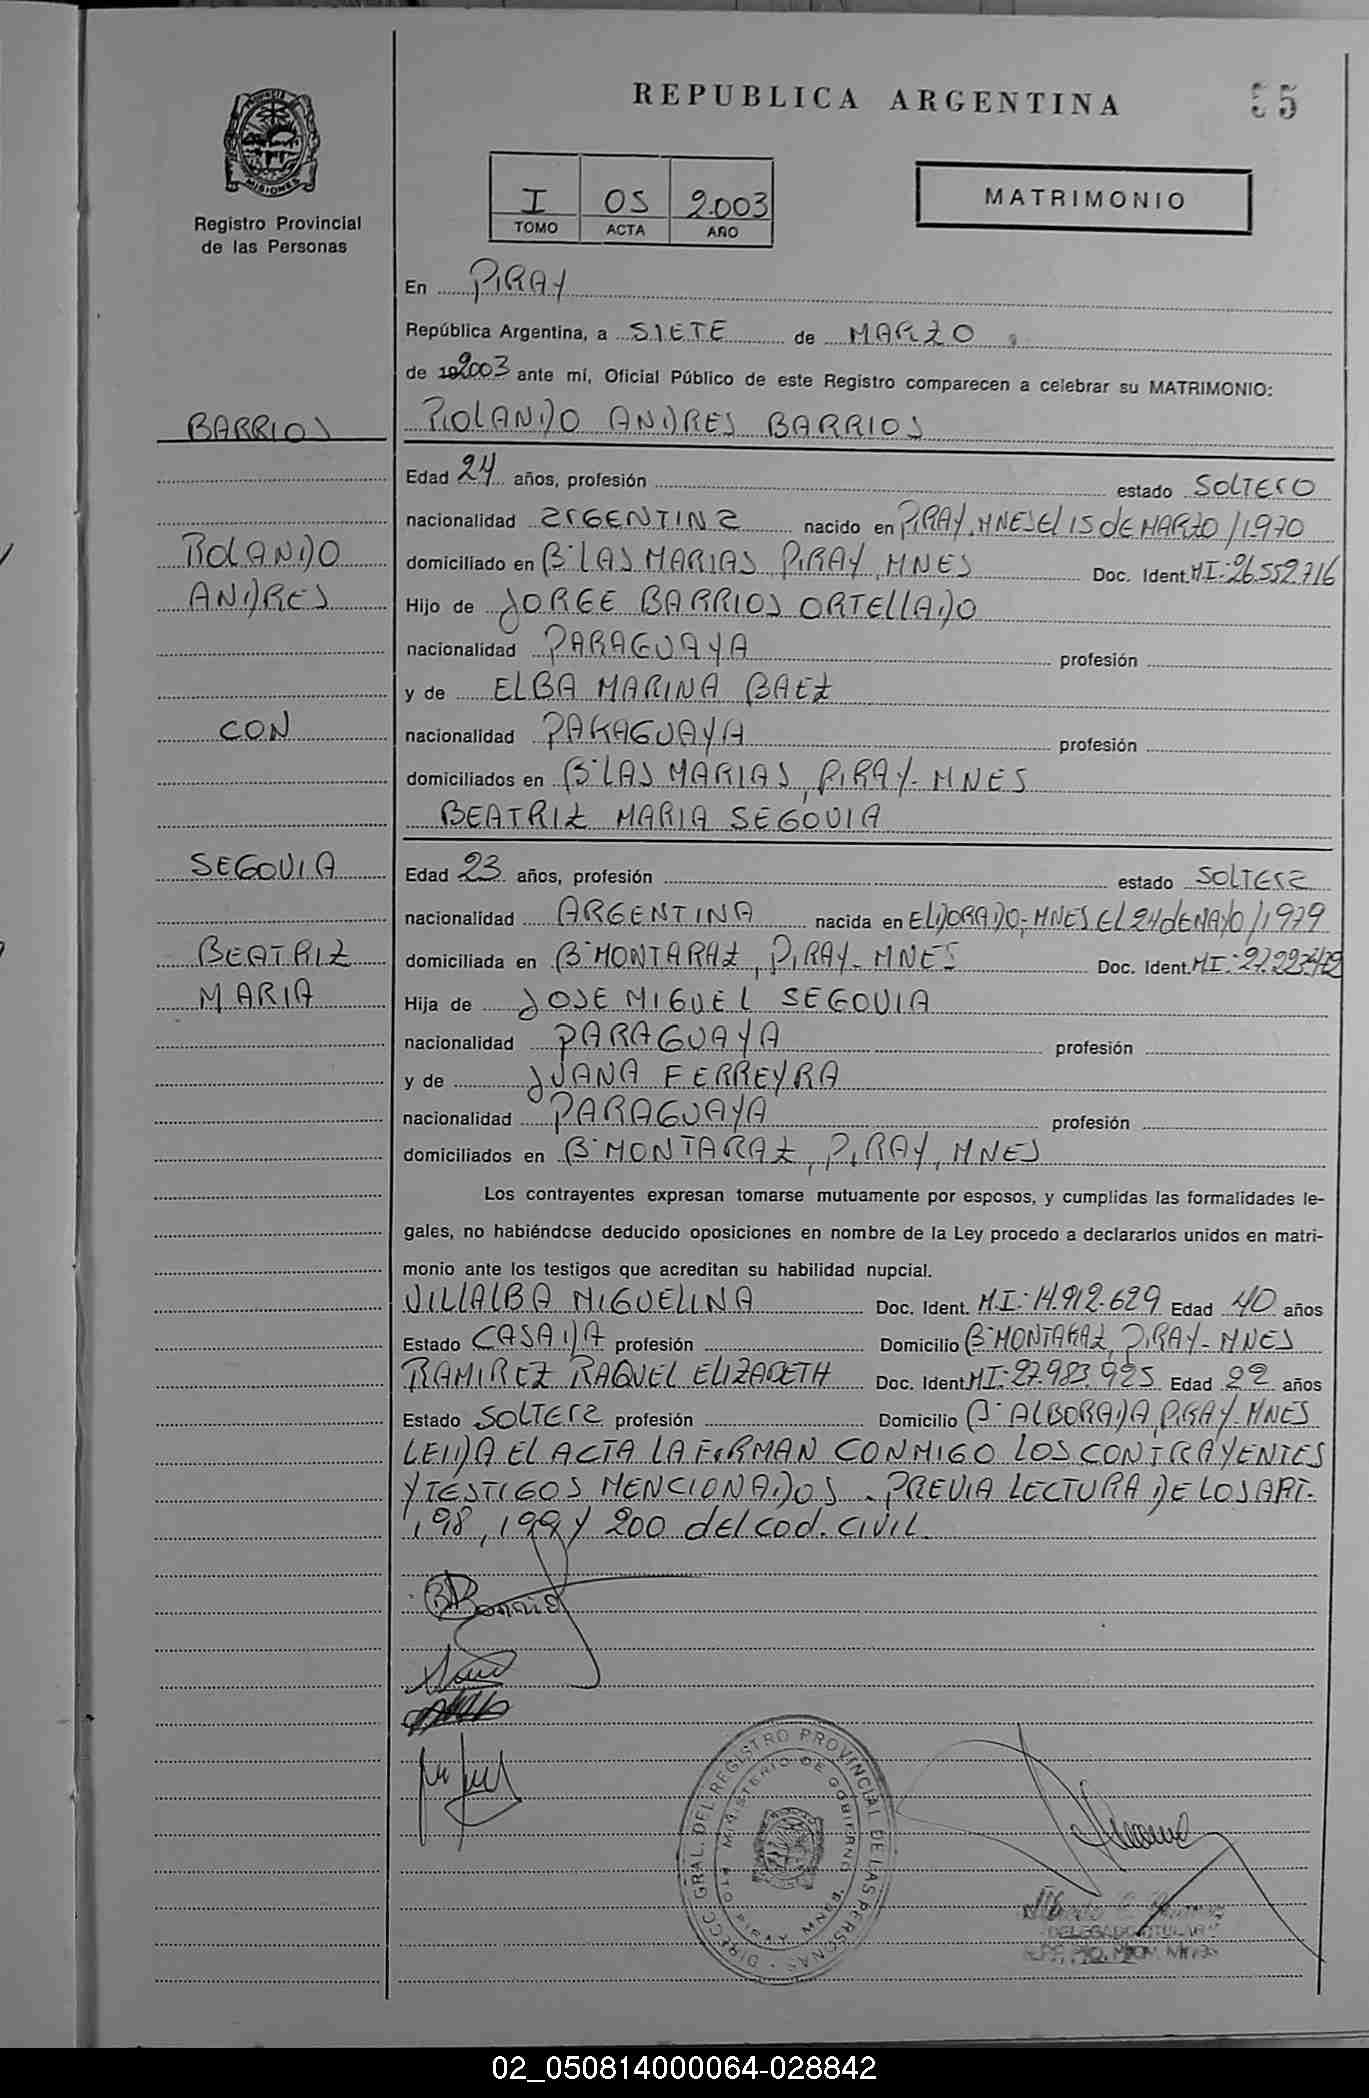 REPUBLICA ARGENTINA
55
PROVINCIA DE MISIONES
Registro Provincial
de las Personas
I 05 2.003
TOMO ACTA AÑO
MATRIMONIO
En PIRAY
República Argentina, a SIETE de MARZO
de 2003 ante mí, Oficial Público de este Registro comparecen a celebrar su MATRIMONIO:
BARRIOS
ROLANDO ANDRES BARRIOS
Edad 24 años, profesión estado SOLTERO
nacionalidad ARGENTINA nacido en PIRAY, MNES El 15 DE MARZO/1.970
ROLANDO
domiciliado en B° LAS MARIAS, PIRAY, MNES Doc. Ident. MI: 26.552.716
ANDRES
Hijo de JORGE BARRIOS ORTELLADO
nacionalidad PARAGUAYA profesión
y de ELBA MARINA BAEZ
CON
nacionalidad PARAGUAYA profesión
domiciliados en B° LAS MARIAS, PIRAY- MNES
BEATRIZ MARIA SEGOVIA
SEGOVIA
Edad 23 años, profesión estado SOLTERA
nacionalidad ARGENTINA nacida en ELDORADO,-MNES El 24 de MAYO/1979
BEATRIZ
domiciliada en B° MONTARAZ, PIRAY- MNES Doc. Ident. MI:
MARIA
Hija de JOSE MIGUEL SEGOVIA
nacionalidad PARAGUAYA profesión
y de JUANA FERREYRA
nacionalidad PARAGUAYA profesión
domiciliados en B° MONTARAZ, PIRAY, MNES
Los contrayentes expresan tomarse mutuamente por esposos, y cumplidas las formalidades le-
gales, no habiéndose deducido oposiciones en nombre de la Ley procedo a declararlos unidos en matri-
monio ante los testigos que acreditan su habilidad nupcial.
VILLALBA MIGUELINA Doc. Ident. M.I: 14.912.629 Edad 40 años
Estado CASADA profesión Domicilio B° MONTARAZ, PIRAY- MNES
RAMIREZ RAQUEL ELIZABETH Doc. Ident. MI: 27.983.925 Edad 22 años
Estado SOLTERA profesión Domicilio B° ALBORADA, PIRAY-MNES
LEIDA EL ACTA LA FIRMAN CONMIGO LOS CONTRAYENTES
Y TESTIGOS MENCIONADOS. PREVIA LECTURA DE LOS ART.
198, 199 Y 200 del Cod. CIVIL.
DIRECC. GRAL. DEL REGISTRO PROVINCIAL DE LAS PERSONAS
MINISTERIO DE GOBIERNO
PTO. PIRAY MNES.
DELEGADO TITULAR
02_050814000064-028842